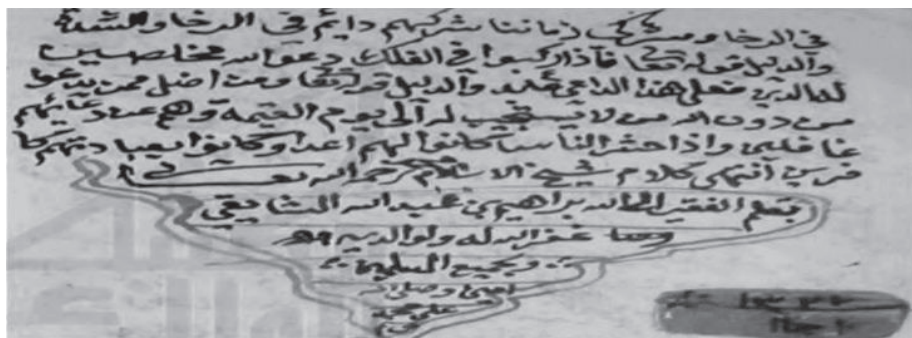 في الرخا ومشركي زماننا شركهم دائم في الرخا والشدة
والدليل قوله تعالى فاذا ركبوا في الفلك دعوا الله مخلصين
له الدين فعلى هذا الداعي عابد والدليل قوله تعالى ومن اضل ممن يدعوا
من دون الله من لا يستجيب له الى يوم القيمة وهم عن دعائهم
غافلين واذا حشر الناس كانوا لهم اعداء وكانوا بعبادتهم كا
فرين انتهى كلام شيخ الاسلام رحمه الله تعالى
بقلم الفقير الى الله ابراهيم بن عبد الله الشايقي
غفر الله له ولوالديه
ولجميع المسلمين
امين وصلى الله
على محمد